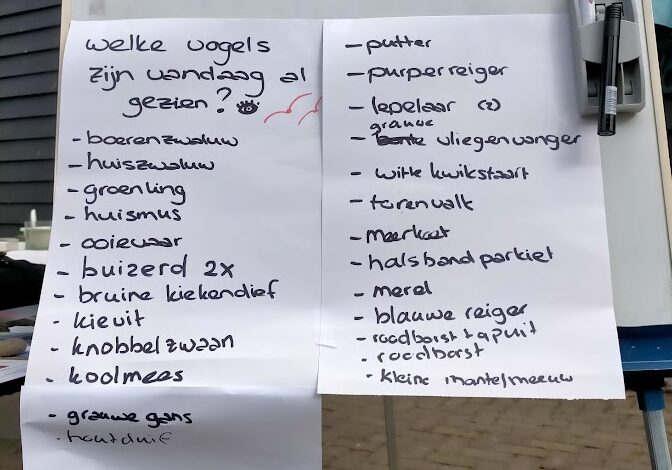 welke vogels
zijn vandaag al
gezien?
- boerenzwaluw
- huiszwaluw
- groenling
- huismus
- ooievaar
- buizerd 2x
- bruine kiekendief
- kievit
- knobbelzwaan
- koolmees
- grauwe gans
- houtduif
- putter
- purperreiger
- lepelaar (2)
grauwe
- vliegenvanger
- witte kwikstaart
- torenvalk
- meerkoet
- halsbandparkiet
- merel
- blauwe reiger
- roodborsttapuit
- roodborst
- kleine mantelmeeuw